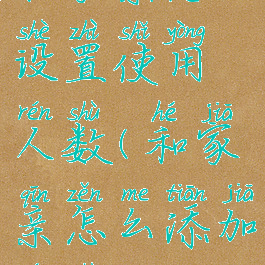 shè zhì shǐ yòng
设置使用
rén shù hé jiā
人数(和家
qīn zěn me tiān jiā
亲怎么添加